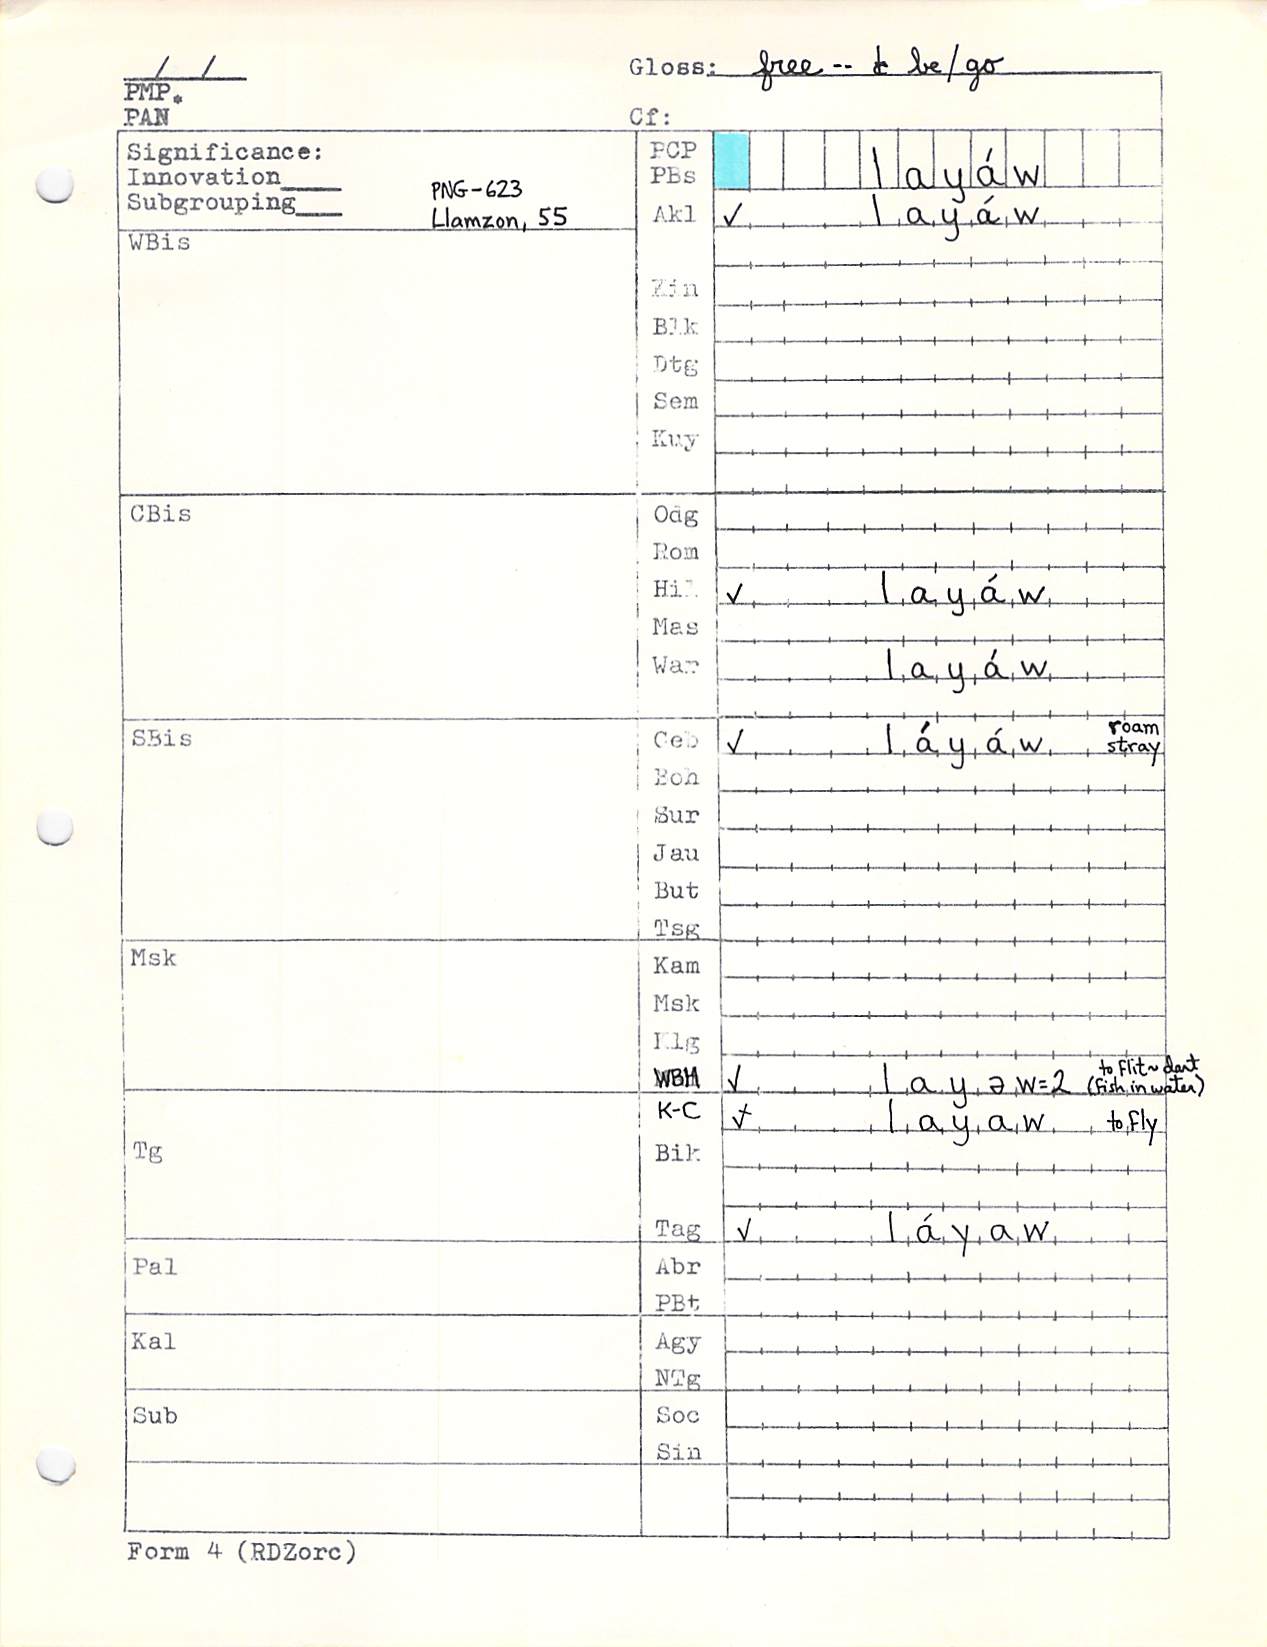 / /
Gloss: free -- to be/go
PMP.
PAN
Cf:
Significance:
Innovation____
Subgrouping___
PNG-623
Llamzon, 55
PCP
PBs layáw
Akl ✓ layáw
WBis
Zin
Blk
Dtg
Sem
Kuy
CBis
Odg
Rom
Hil ✓ layáw
Mas
War layáw
SBis
Ceb ✓ láyáw roam
stray
Boh
Sur
Jau
But
Tsg
Msk
Kam
Msk
Klg
WBM ✓ layəw=2 to flit~dart
(fish in water)
K-C layaw to fly
Tg
Bik
Tag ✓ láyaw
Pal
Abr
PBt
Kal
Agy
NTg
Sub
Soc
Sin
Form 4 (RDZorc)